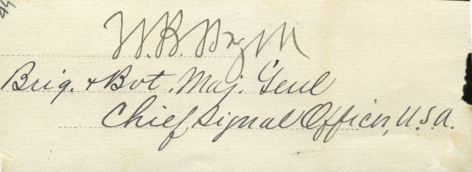 W. B. Hazen
Brig. & Bvt. Maj. Genl
Chief Signal Officer, U.S.A.